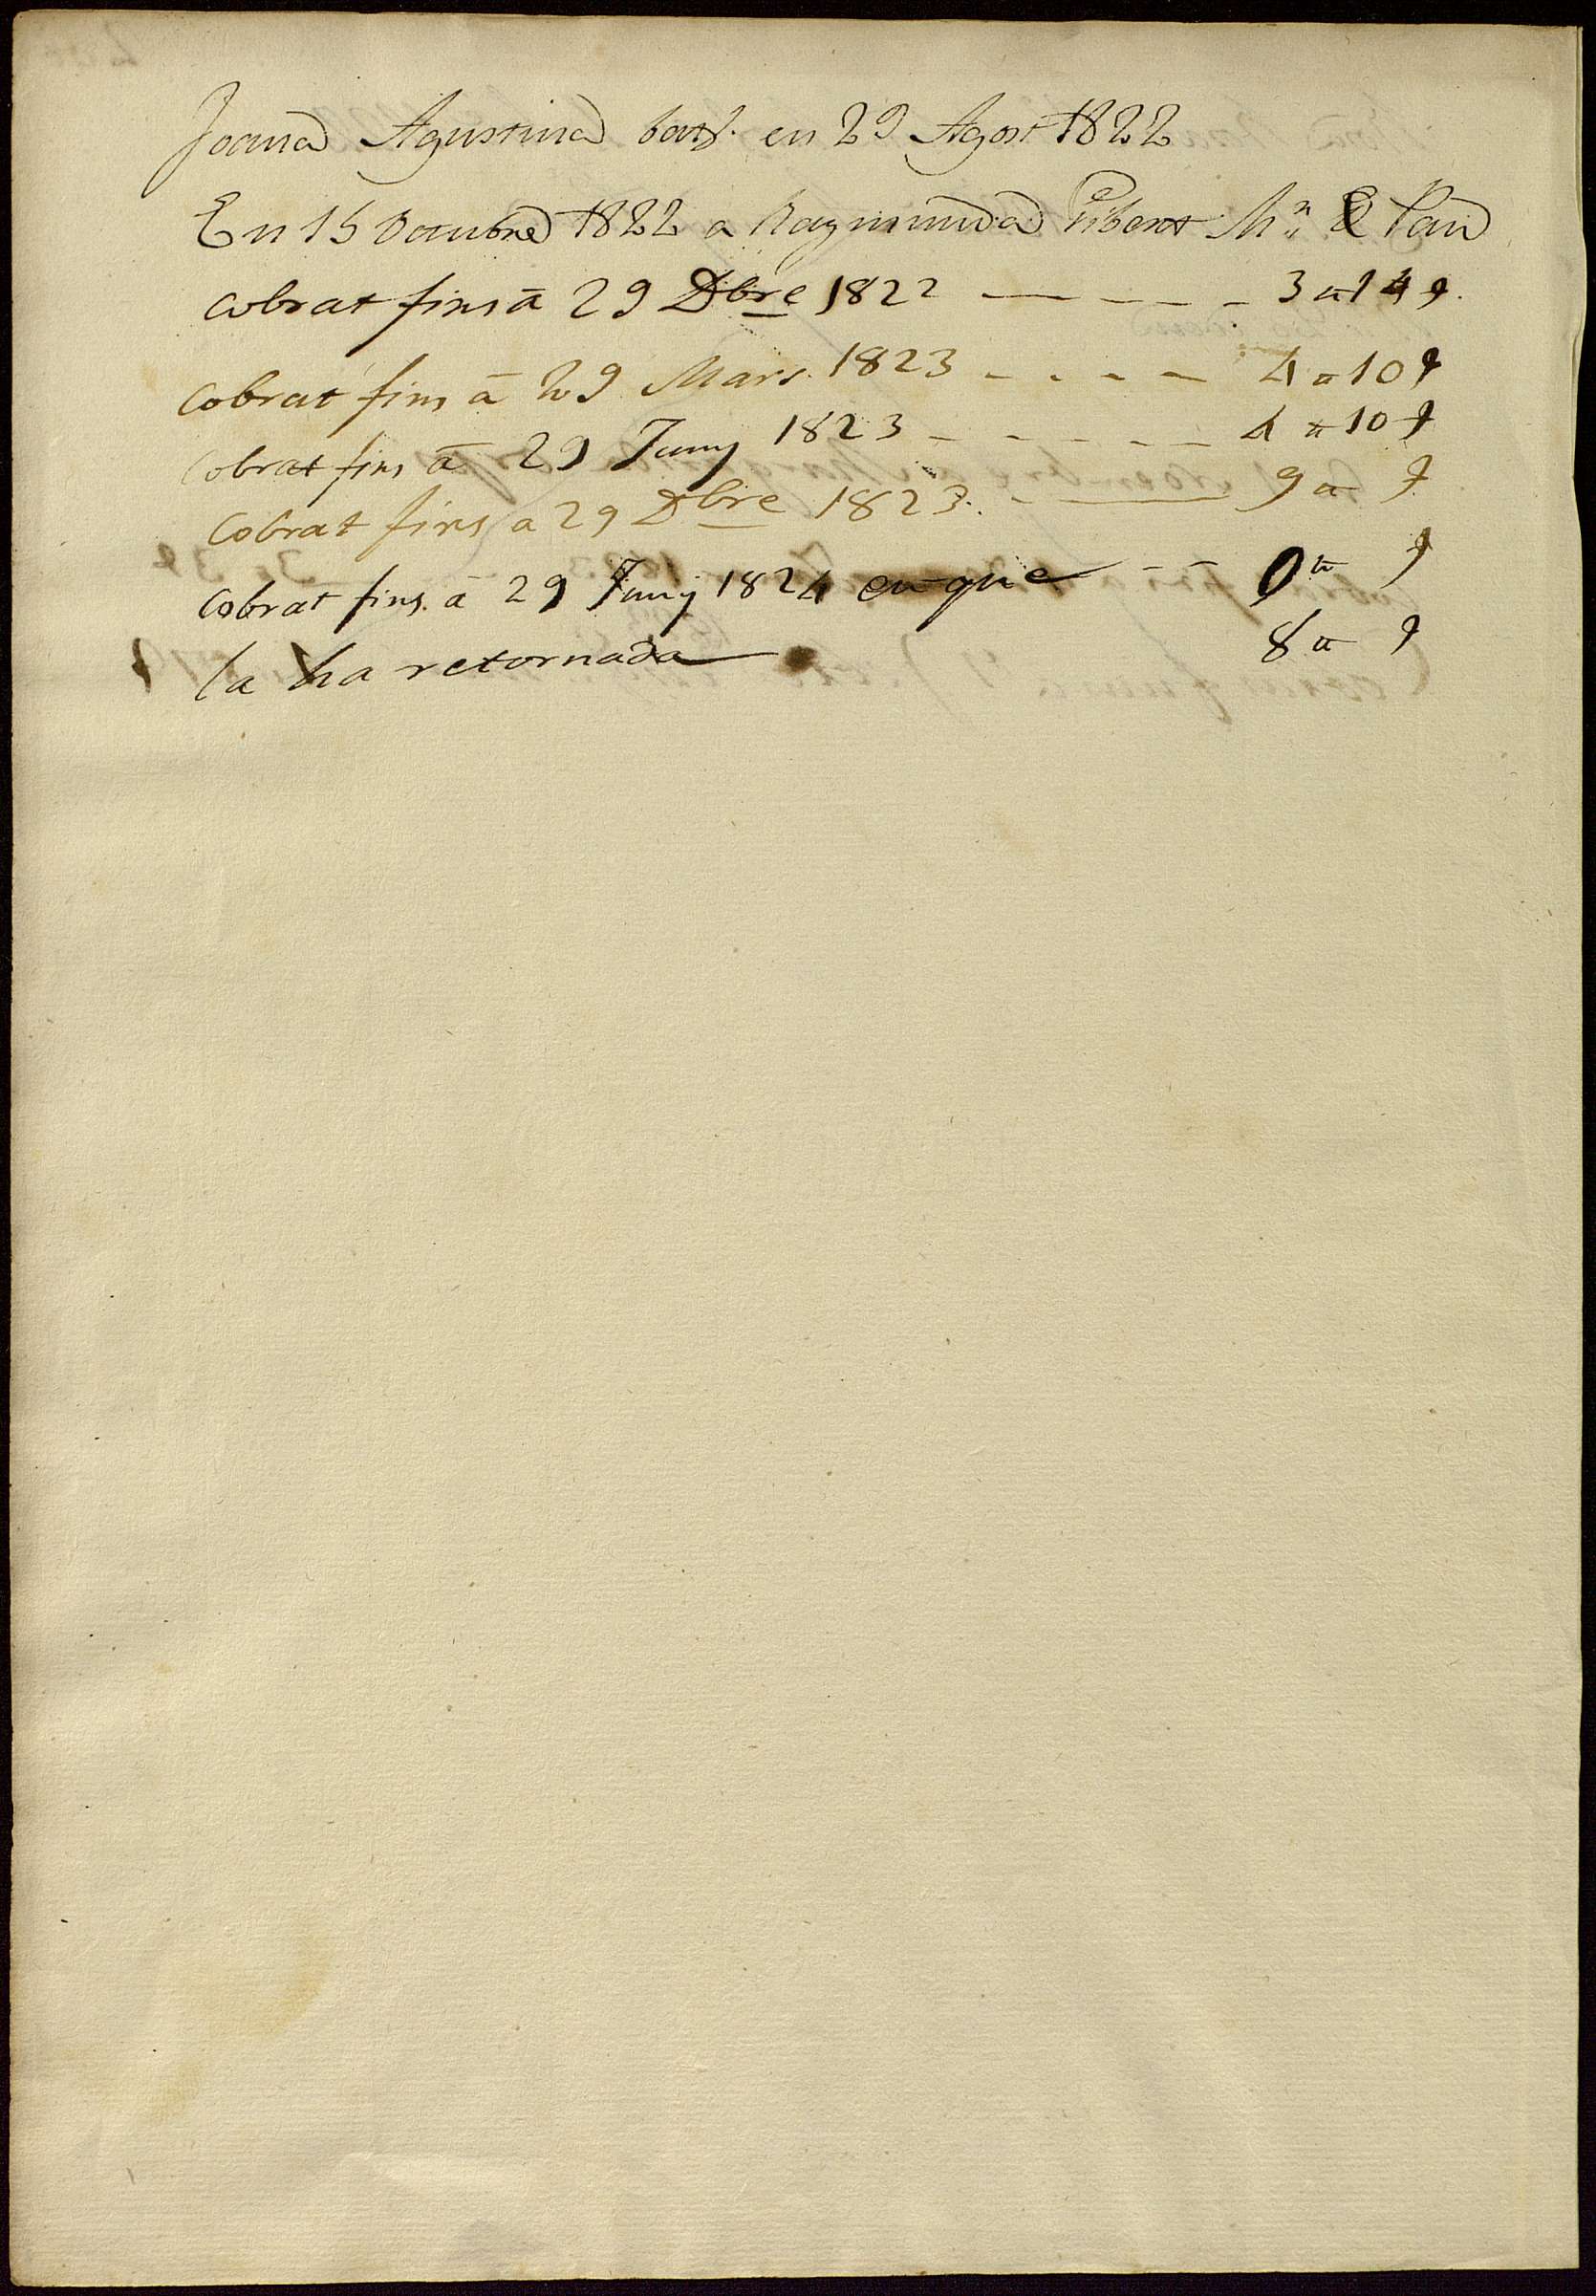 Joana Agustina batj. en 29 Agost 1822
En 15 Octubre 1822 a Raymunda Ribert Mn. & Pau
Cobrat fins à 29 Dbre 1822 — — — — 3 ʉ 14 ₰.
Cobrat fins à 29 Mars. 1823 - - - - 4 ʉ 10 ₰
Cobrat fins à 29 Juny 1823 - - - - - 4 ʉ 10 ₰
Cobrat fins a 29 Dbre 1823. - —— 9 ʉ ₰
Cobrat fins. à 29 Juny 1824 en que - - 0 ʉ ₰
la ha retornada 8 ʉ ₰